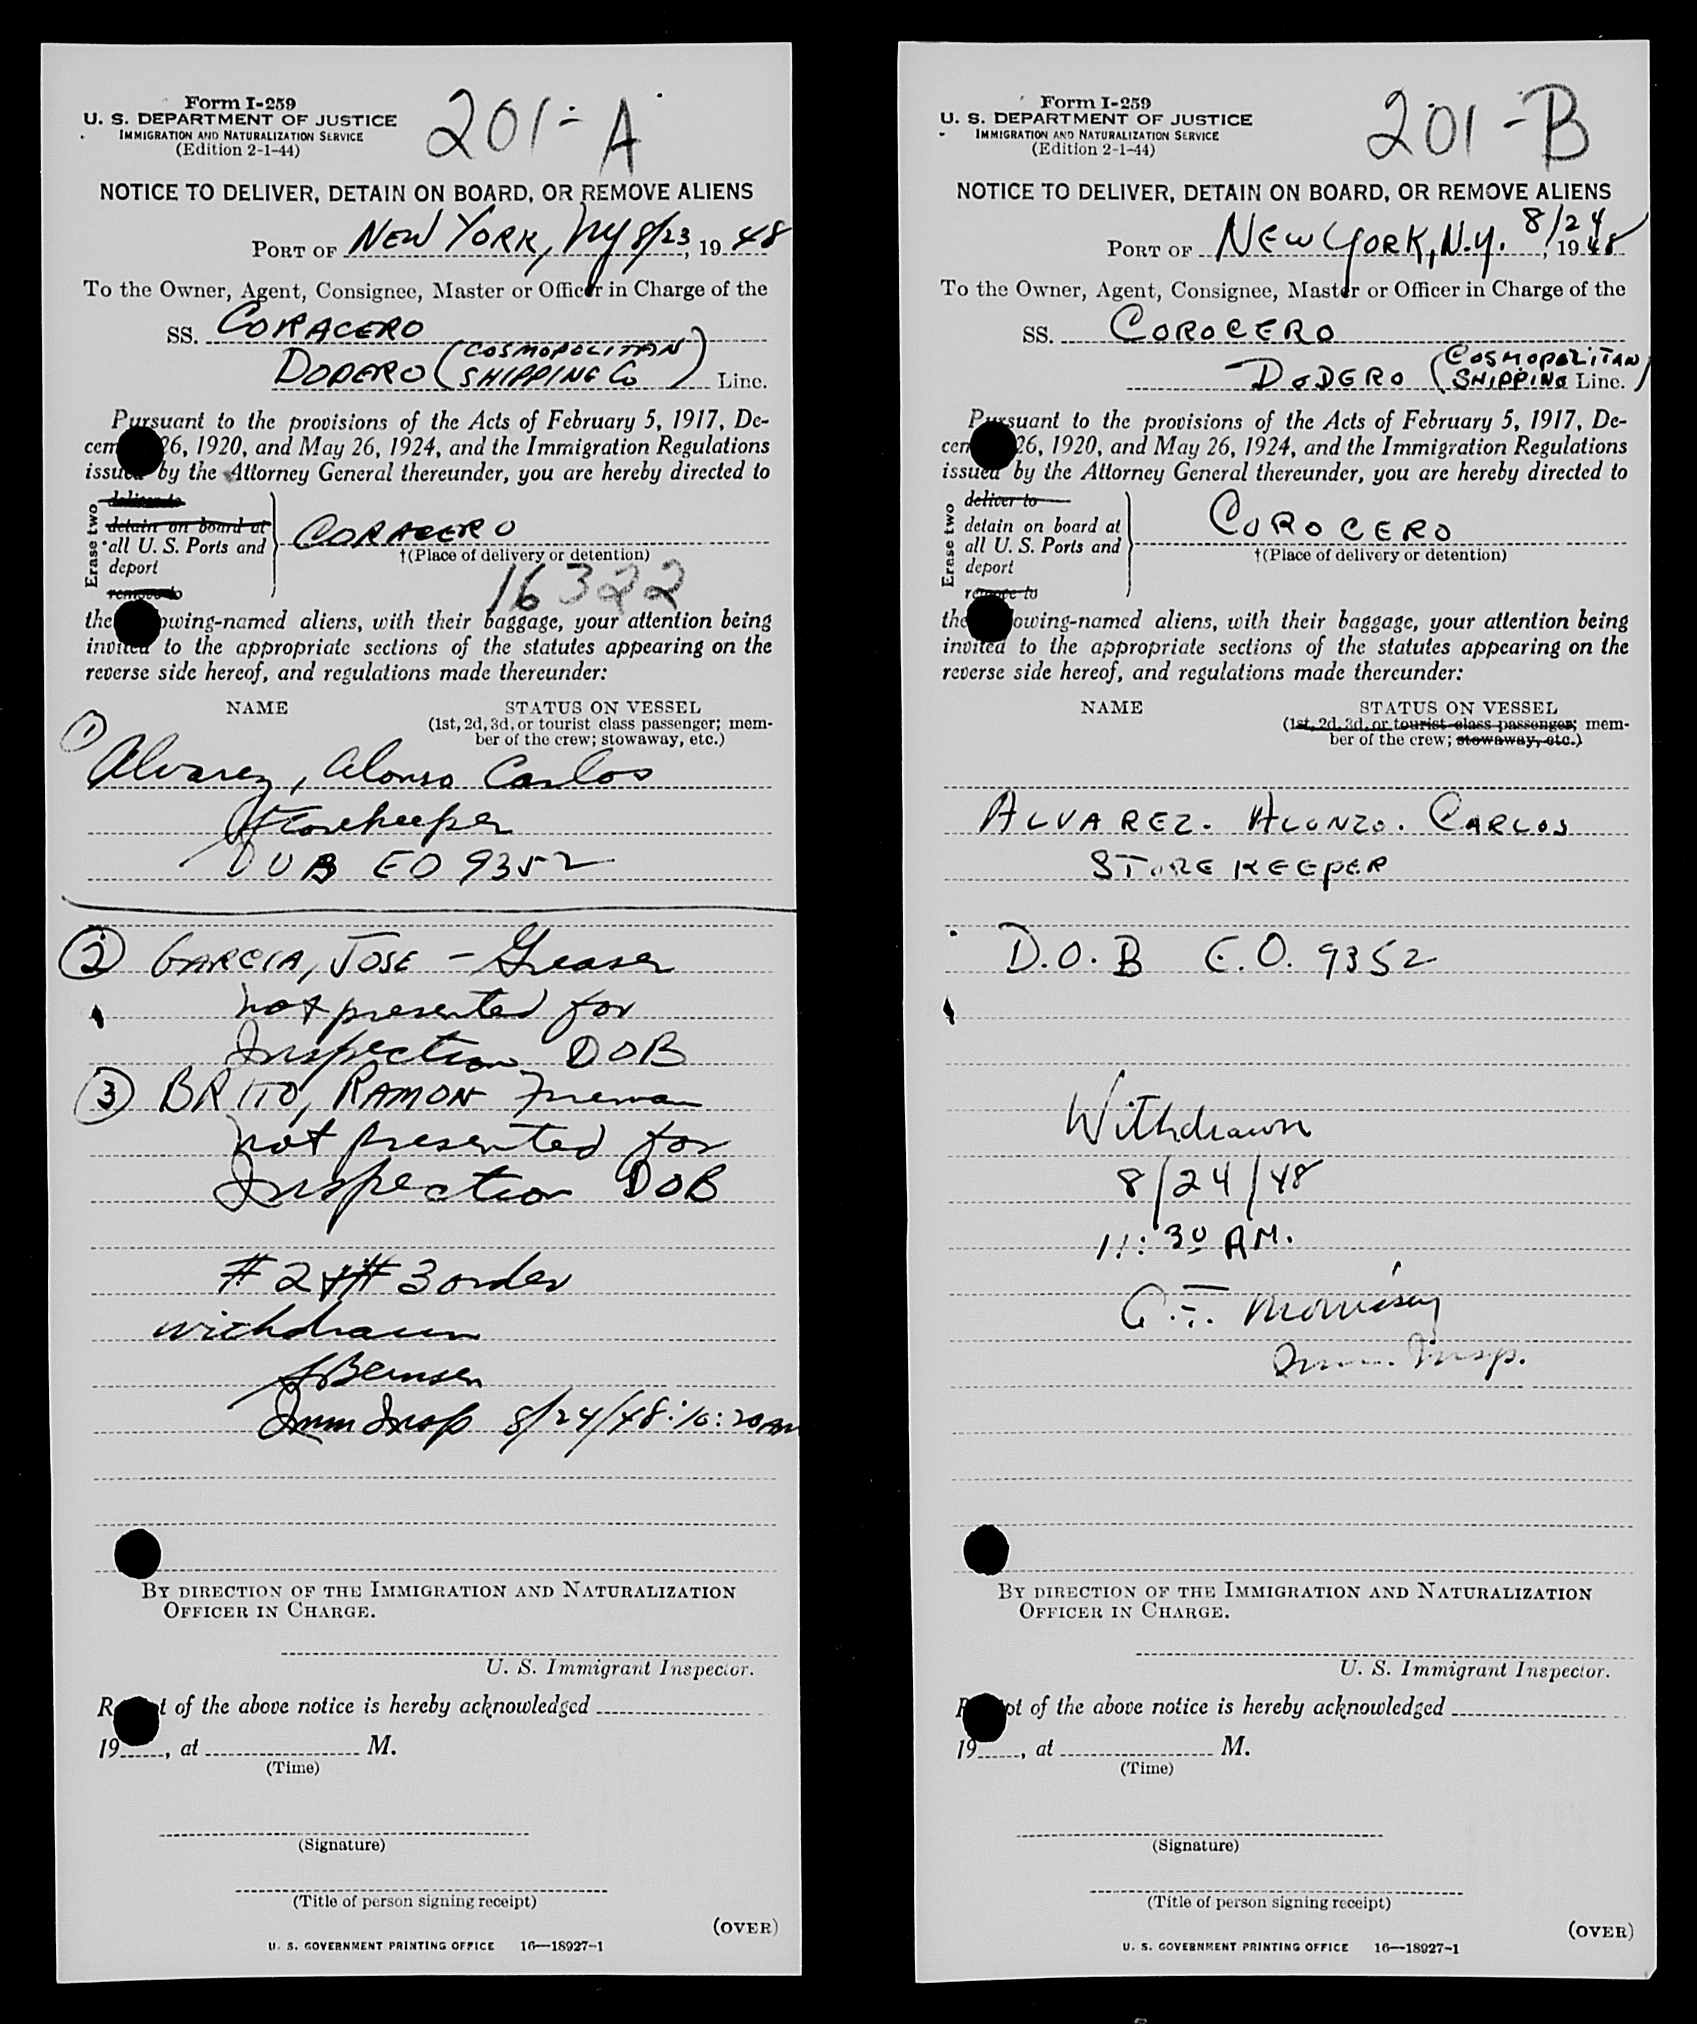 Form I-259
U. S. DEPARTMENT OF JUSTICE
IMMIGRATION AND NATURALIZATION SERVICE
(Edition 2-1-44)
201-A
NOTICE TO DELIVER, DETAIN ON BOARD, OR REMOVE ALIENS
PORT OF NEW YORK, NY 8/23, 19 48
To the Owner, Agent, Consignee, Master or Officer in Charge of the
SS. CORACERO
DODERO (COSMOPOLITAN SHIPPING Co) Line.
Pursuant to the provisions of the Acts of February 5, 1917, De-
cem 26, 1920, and May 26, 1924, and the Immigration Regulations
issued by the Attorney General thereunder, you are hereby directed to
Erase two
deliver to
detain on board at
all U. S. Ports and
deport
remove to
CORACERO
†(Place of delivery or detention)
16322
the owing-named aliens, with their baggage, your attention being
invited to the appropriate sections of the statutes appearing on the
reverse side hereof, and regulations made thereunder:
NAME STATUS ON VESSEL
(1st, 2d, 3d, or tourist class passenger; mem-
ber of the crew; stowaway, etc.)
① Alvarez, Alonso Carlos
Storekeeper
DOB EO 9352
② GARCIA, JOSE - Greaser
not presented for
Inspection DOB
③ BRITO, RAMON Fireman
not presented for
Inspection DOB
# 2 + # 3 order
withdrawn
Imm Insp 8/24/48: 10:20 AM
BY DIRECTION OF THE IMMIGRATION AND NATURALIZATION
OFFICER IN CHARGE.
U. S. Immigrant Inspector.
R t of the above notice is hereby acknowledged
19 , at M.
(Time)
(Signature)
(Title of person signing receipt)
(OVER)
U. S. GOVERNMENT PRINTING OFFICE 16—18927-1
Form I-259
U. S. DEPARTMENT OF JUSTICE
IMMIGRATION AND NATURALIZATION SERVICE
(Edition 2-1-44)
201-B
NOTICE TO DELIVER, DETAIN ON BOARD, OR REMOVE ALIENS
PORT OF NEW YORK, N.Y. 8/24, 19 48
To the Owner, Agent, Consignee, Master or Officer in Charge of the
SS. COROCERO
DODERO (COSMOPOLITAN SHIPPING) Line.
Pursuant to the provisions of the Acts of February 5, 1917, De-
cem 26, 1920, and May 26, 1924, and the Immigration Regulations
issued by the Attorney General thereunder, you are hereby directed to
Erase two
deliver to
detain on board at
all U. S. Ports and
deport
remove to
COROCERO
†(Place of delivery or detention)
the owing-named aliens, with their baggage, your attention being
invited to the appropriate sections of the statutes appearing on the
reverse side hereof, and regulations made thereunder:
NAME STATUS ON VESSEL
(1st, 2d, 3d, or tourist class passenger; mem-
ber of the crew; stowaway, etc.)
ALVAREZ. ALONZO. CARLOS
STOREKEEPER
D.O.B E.O. 9352
Withdrawn
8/24/48
11:30 AM.
Imm. Insp.
BY DIRECTION OF THE IMMIGRATION AND NATURALIZATION
OFFICER IN CHARGE.
U. S. Immigrant Inspector.
R pt of the above notice is hereby acknowledged
19 , at M.
(Time)
(Signature)
(Title of person signing receipt)
(OVER)
U. S. GOVERNMENT PRINTING OFFICE 16—18927-1